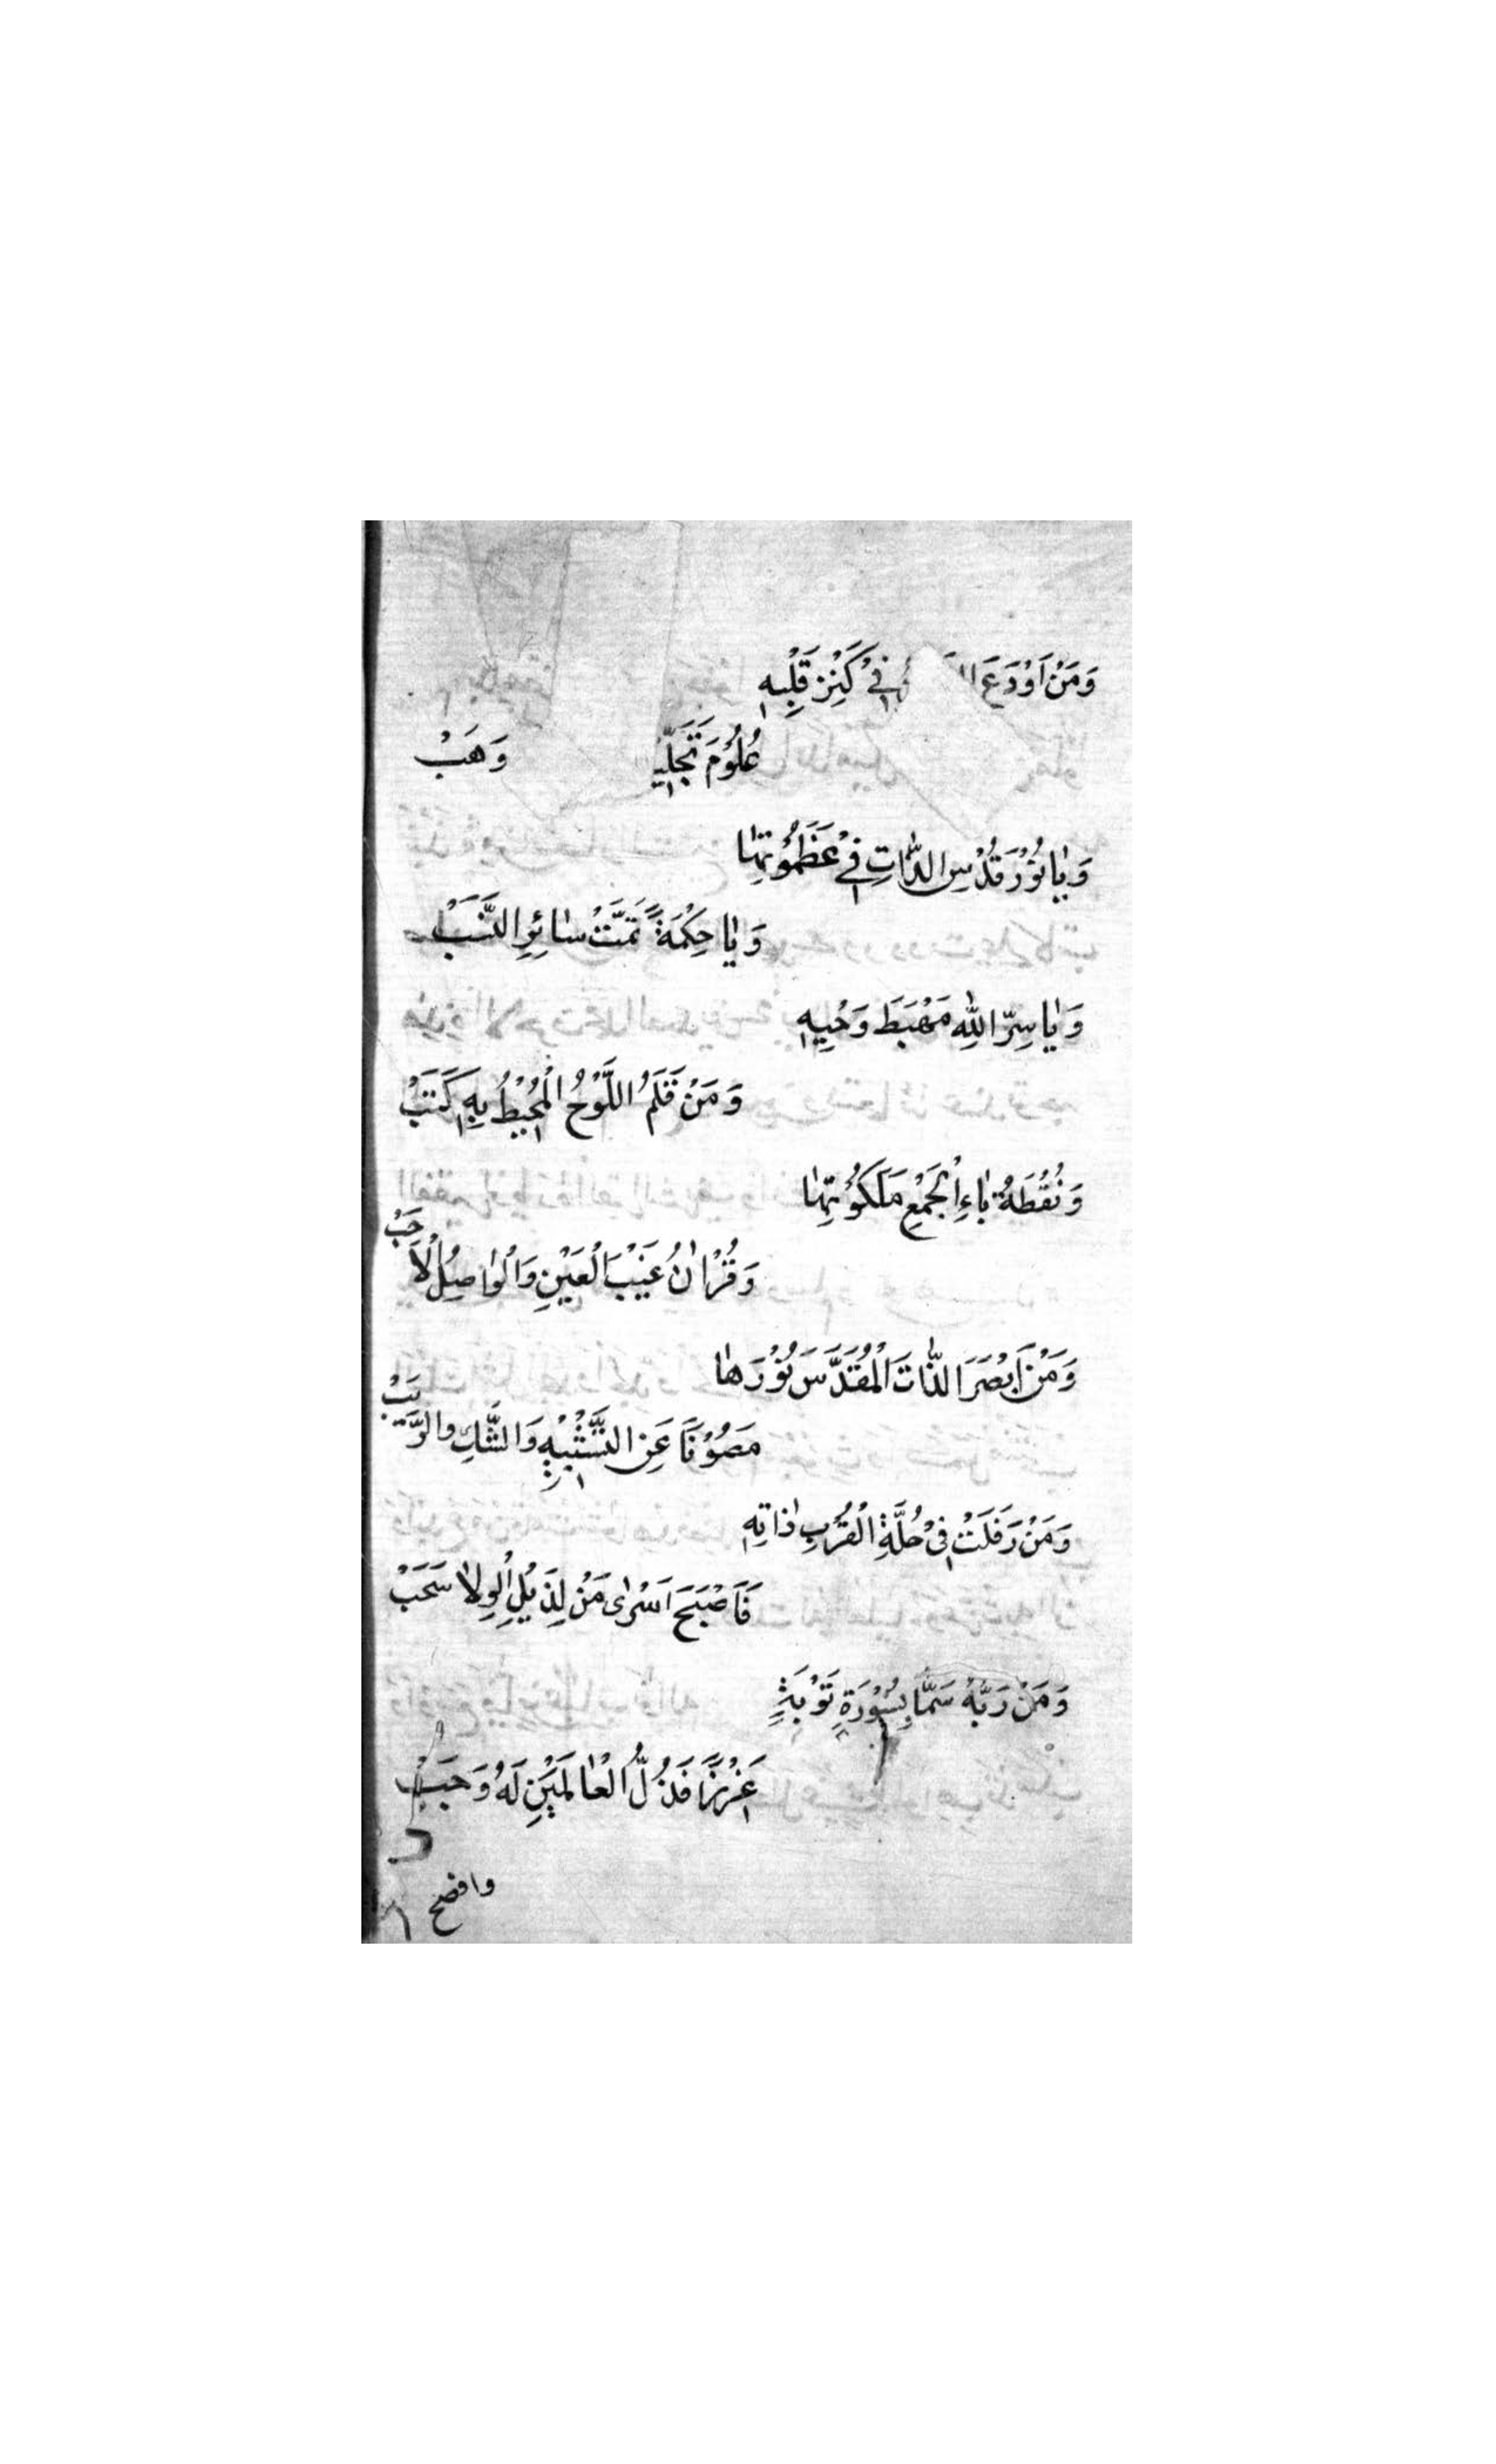 وَمَنْ اَوْدَعَ فِيْ كَنْزِ قَلْبِهِ
عُلُوْمَ تَجَلِّيْهِ وَهَبْ
وَيَا نُوْرَ قُدْسِ الذَّاتِ فِيْ عَظَمُوْتِهَا
وَيَا حِكْمَةً تَمَّتْ سَائِرِ النَّسَبْ
وَيَا سِرَّ اللّٰهِ مَهْبَطَ وَحْيِهِ
وَمَنْ قَلَمُ اللَّوْحُ الْمُحِيْطُ بِهِ كَتَبْ
وَنُقْطَةُ بَاءِ الْجَمْعِ مَلَكُوْتِهَا
وَقُرْاٰنُ غَيْبِ الْعَيْنِ وَالْوَاصِلُ الْاَحَبْ
وَمَنْ اَبْصَرَ الذَّاتَ الْمُقَدَّسَ نُوْرُهَا
مَصُوْنًا عَنِ التَّشْبِيْهِ وَالشَّكِّ وَالرَّيَبْ
وَمَنْ رَفَلَتْ فِيْ حُلَّةِ الْقُرْبِ ذَاتِهِ
فَاَصْبَحَ اَسْرٰى مَنْ لِذَيْلِ الْوِلَا سَحَبْ
وَمَنْ رَبُّهُ سَمَّا بِسُوْرَةِ تَوْبَةٍ
عَزِيْزًا فَذُلُّ الْعَالَمِيْنَ لَهُ وَجَبْ
وافضح